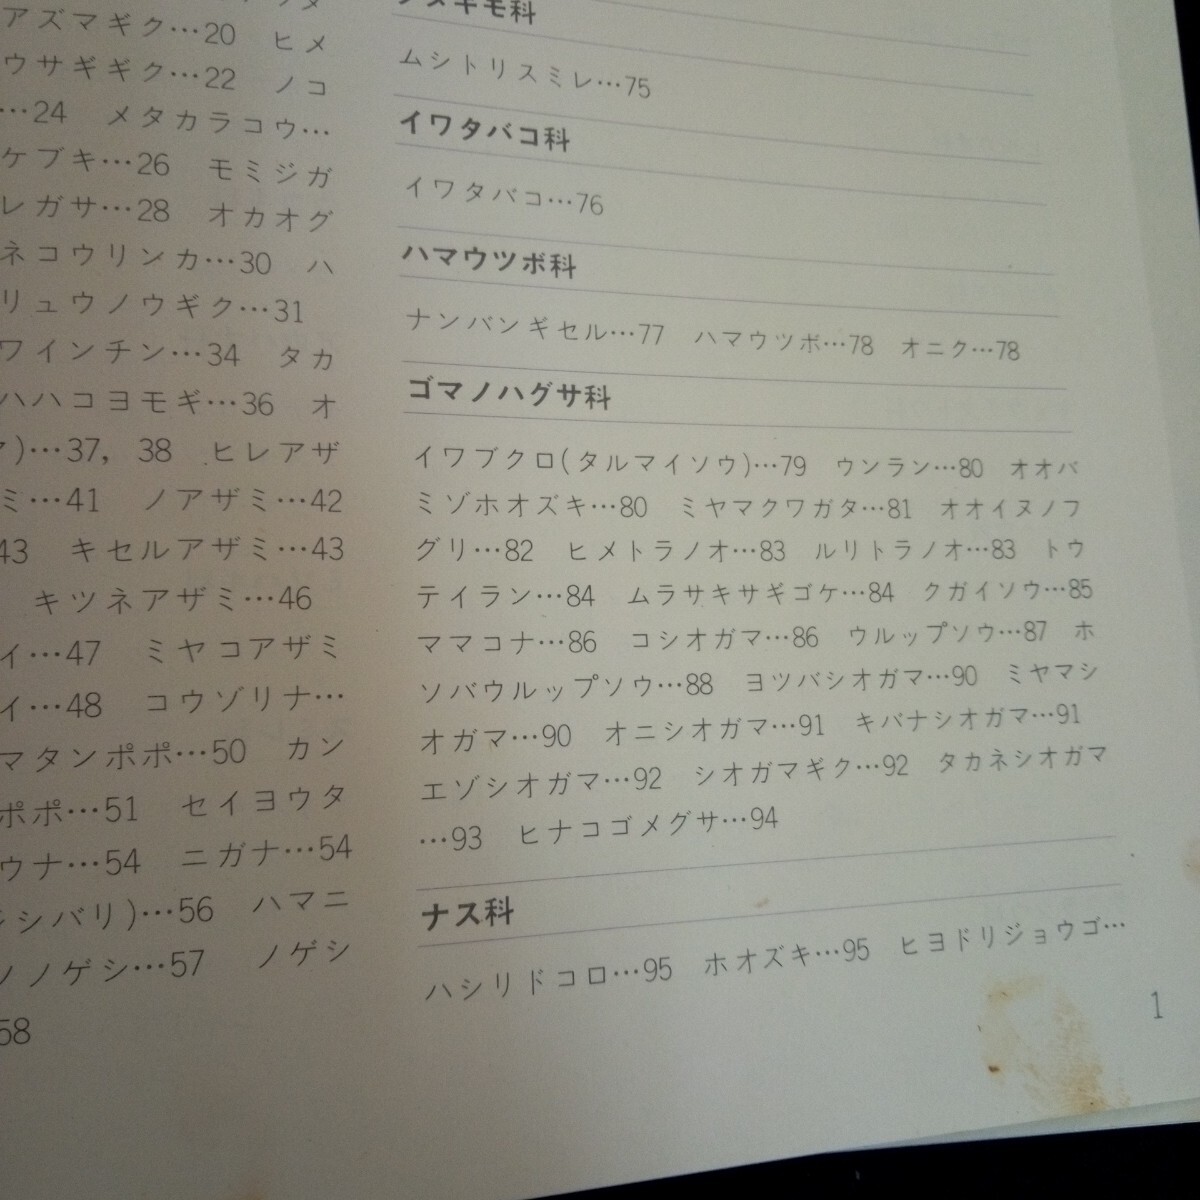 アズマギク…20　ヒメ
ウサギギク…22　ノコ
…24　メタカラコウ…
ケブキ…26　モミジガ
レガサ…28　オカオグ
ネコウリンカ…30　ハ
リュウノウギク…31
ワインチン…34　タカ
ハハコヨモギ…36　オ
)…37, 38　ヒレアザ
ミ…41　ノアザミ…42
43　キセルアザミ…43
キツネアザミ…46
イ…47　ミヤコアザミ
イ…48　コウゾリナ…
マタンポポ…50　カン
ポポ…51　セイヨウタ
ウナ…54　ニガナ…54
シバリ)…56　ハマニ
ノノゲシ…57　ノゲシ
58
ヌキモ科
ムシトリスミレ…75
イワタバコ科
イワタバコ…76
ハマウツボ科
ナンバンギセル…77　ハマウツボ…78　オニク…78
ゴマノハグサ科
イワブクロ(タルマイソウ)…79　ウンラン…80　オオバ
ミゾホオズキ…80　ミヤマクワガタ…81　オオイヌノフ
グリ…82　ヒメトラノオ…83　ルリトラノオ…83　トウ
テイラン…84　ムラサキサギゴケ…84　クガイソウ…85
ママコナ…86　コシオガマ…86　ウルップソウ…87　ホ
ソバウルップソウ…88　ヨツバシオガマ…90　ミヤマシ
オガマ…90　オニシオガマ…91　キバナシオガマ…91
エゾシオガマ…92　シオガマギク…92　タカネシオガマ
…93　ヒナコゴメグサ…94
ナス科
ハシリドコロ…95　ホオズキ…95　ヒヨドリジョウゴ…
1